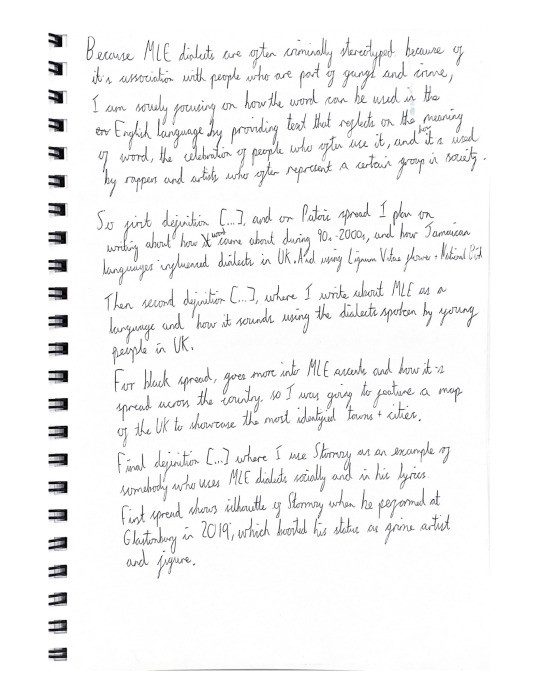 Because MLE dialects are often criminally stereotyped because of
it's association with people who are part of gangs and crime,
I am solely focusing on how the word can be used in the
English language by providing text that reflects on the meaning
of word, the celebration of people who often use it, and how it's used
by rappers and artists who often represent a certain group in society.
So first definition [...], and on Patois spread I plan on
writing about how word came about during 90s-2000s, and how Jamaican
languages influenced dialects in UK. And using Lignum Vitae flower + National Dish
Then second definition [...], where I write about MLE as a
language and how it sounds using the dialects spoken by young
people in UK.
For black spread, goes more into MLE accents and how it is
spread across the country. so I was going to feature a map
of the UK to showcase the most identified towns + cities.
Final definition [...] where I use Stormzy as an example of
somebody who uses MLE dialects socially and in his lyrics.
First spread shows silhouette of Stormzy when he performed at
Glastonbury in 2019, which boosted his status as grime artist
and figure.